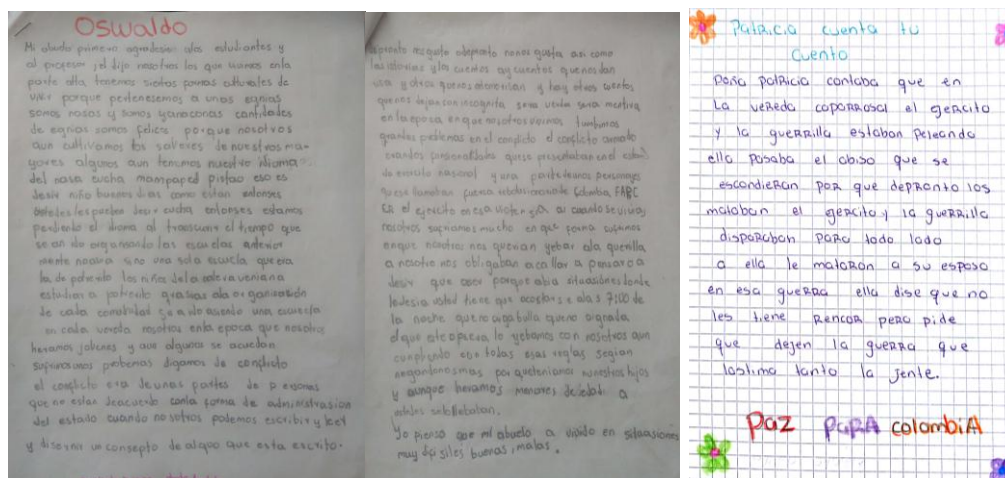 Oswaldo
Mi abuelo primero agradesio a los estudiantes y
al profesor, el dijo nosotros los que vivimos en la
parte alta tenemos siertas formas culturales de
vivir porque pertenesemos a unas egnias
somos nasas y somos yanaconas cantidades
de egnias somos felices porque nosotros
aun cultivamos los saberes de nuestros ma-
yores algunos aun tenemos nuestro idioma
del nasa cucha mampaped pistao eso es
desir niño buenos dias como estan entonses
ustedes les pueden desir cucha entonses estamos
perdiendo el idioma al transcurir el tiempo que
se an ido organisando las escuelas anterior
mente no avia sino una sola escuela que era
la de potrerito los niños de la
estudian a potrerito grasias ala organisasión
de cada comunidad se a ido asiendo una escuela
en cada vereda nosotros en la epoca que nosotros
heramos jobenes y aun algunos se acuerdan
sufriamos unos problemas digamos de conflicto
el conflicto era de unas partes de personas
que no estan deacuerdo con la forma de administrasion
del estado cuando nosotros podemos escribir y leer
y diseren un consepto de algo que esta escrito.
apronto nos gusta odepronto no nos gusta, asi como
las istorias y los cuentos ay cuentos que nos dan
risa y otros que nos atemorisan y hay otros cuentos
que nos dejan con incognita sera verda sera mentira
en la epoca en que nosotros vivimos tuvimos
grandes problemas en el conflicto el conflicto armado
eran dos personalidades que se presentaban en el estado
de ejersito nasional y una parte de unos personajes
que se llamaban fuersa rebolusionaria de Colombia FARC
En el ejersito en esa violensia cuando se vivia
nosotros sufriamos mucho en que forma sufrimos
en que nosotros nos querian yebar ala querilla
a nosotro nos obligaban a callar a pensar a
desir que aser porque abia situasiones donde
le desia usted tiene que acostarse alas 7:00 de
la noche que no aiga bulla que no aiga nada
el que no obedesia lo yebamos con nosotros aun
cumpliendo con todas esas reglas segian
negandonos mas por que teniamos nuestros hijos
y aunque heramos menores de edad a
 se lo llebaban.
Yo pienso que mi abuelo a vibido en situasiones
muy dificiles buenas, malas.
Patricia cuenta tu
Cuento
Doña patricia contaba que en
La vereda coparrosal el gercito
y la guerrilla estaban peleando
ella pasaba el abiso que se
escondieran por que depronto los
mataban el gercito y la guerrilla
disparaban para todo lado
a ella le mataron a su esposo
en esa guerra ella dise que no
les tiene rencor pero pide
que dejen la guerra que
lastima tanto la jente.
Paz PaRA colombiA